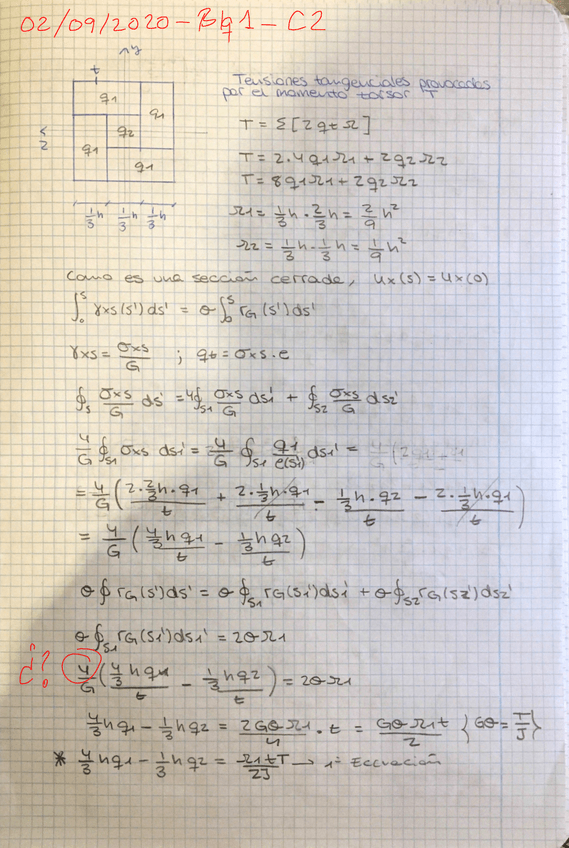 02/09/2020 - Bq1 - C2
y
t
q1
q1
q2
q1
q1
1/3h 1/3h 1/3h
Tensiones tangenciales provocadas
por el momento torsor T
T = Σ[2qtΩ]
T = 2·4q1Ω1 + 2q2Ω2
T = 8q1Ω1 + 2q2Ω2
Ω1 = 1/3h · 2/3h = 2/9 h²
Ω2 = 1/3h · 1/3h = 1/9 h²
Como es una sección cerrada, ux(s) = ux(0)
∫₀ˢ γxs(s')ds' = θ∫₀ˢ rG(s')ds'
γxs = σxs/G ; qt = σxs·e
∮s σxs/G ds' = 4∮s1 σxs/G ds1' + ∮s2 σxs/G ds2'
4/G ∮s1 σxs ds1' = 4/G ∮s1 q1/e(s1') ds1' =
= 4/G (2·2/3h·q1/t + 2·1/3h·q1/t - 1/3h·q2/t - 2·1/3h·q1/t)
= 4/G (4/3hq1/t - 1/3hq2/t)
θ∮rG(s')ds' = θ∮s1 rG(s1')ds1' + θ∮s2 rG(s2')ds2'
θ∮s1 rG(s1')ds1' = 2θΩ1
¿? 4/G (4/3hq1/t - 1/3hq2/t) = 2θΩ1
4/3hq1 - 1/3hq2 = 2GθΩ1/4 · t = GθΩ1t/2 {Gθ = T/J}
* 4/3hq1 - 1/3hq2 = Ω1tT/2J → 1ª Ecuación